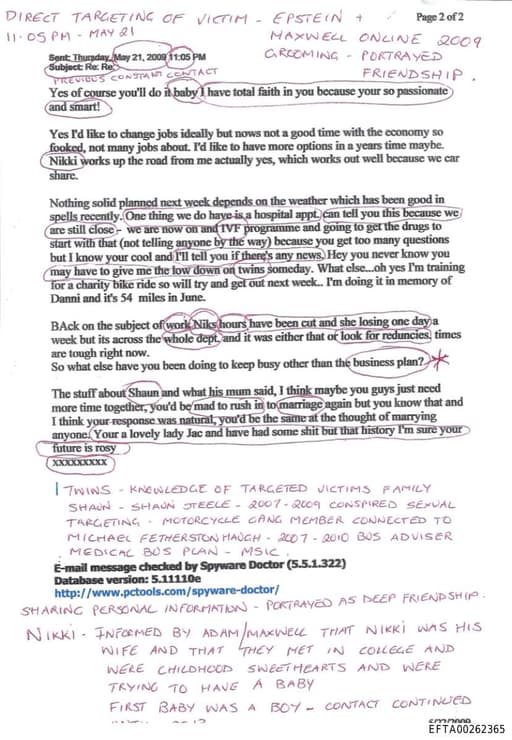 DIRECT TARGETING OF VICTIM - EPSTEIN + MAXWELL ONLINE 2009
Page 2 of 2
11.05 PM - MAY 21
GROOMING - PORTRAYED FRIENDSHIP.
Sent: Thursday, May 21, 2009 11:05 PM
Subject: Re: Re:
PREVIOUS CONSTANT CONTACT
Yes of course you'll do it baby I have total faith in you because your so passionate
and smart!
Yes I'd like to change jobs ideally but nows not a good time with the economy so
fooked, not many jobs about. I'd like to have more options in a years time maybe.
Nikki works up the road from me actually yes, which works out well because we car
share.
Nothing solid planned next week depends on the weather which has been good in
spells recently. One thing we do have is a hospital appt, can tell you this because we
are still close - we are now on and IVF programme and going to get the drugs to
start with that (not telling anyone by the way) because you get too many questions
but I know your cool and I'll tell you if there's any news. Hey you never know you
may have to give me the low down on twins someday. What else...oh yes I'm training
for a charity bike ride so will try and get out next week.. I'm doing it in memory of
Danni and it's 54 miles in June.
BAck on the subject of work Niks hours have been cut and she losing one day a
week but its across the whole dept. and it was either that or look for reduncies, times
are tough right now.
So what else have you been doing to keep busy other than the business plan?
The stuff about Shaun and what his mum said, I think maybe you guys just need
more time together, you'd be mad to rush in to marriage again but you know that and
I think your response was natural, you'd be the same at the thought of marrying
anyone. Your a lovely lady Jac and have had some shit but that history I'm sure your
future is rosy
xxxxxxxxx
TWINS - KNOWLEDGE OF TARGETED VICTIMS FAMILY
SHAUN - SHAUN STEELE - 2007-2009 CONSPIRED SEXUAL
TARGETING - MOTORCYCLE GANG MEMBER CONNECTED TO
MICHAEL FETHERSTONHAUGH - 2007 - 2010 BUS ADVISER
MEDICAL BUS PLAN - MSIC.
E-mail message checked by Spyware Doctor (5.5.1.322)
Database version: 5.11110e
http://www.pctools.com/spyware-doctor/
SHARING PERSONAL INFORMATION - PORTRAYED AS DEEP FRIENDSHIP.
NIKKI - INFORMED BY ADAM/MAXWELL THAT NIKKI WAS HIS
WIFE AND THAT THEY MET IN COLLEGE AND
WERE CHILDHOOD SWEETHEARTS AND WERE
TRYING TO HAVE A BABY
FIRST BABY WAS A BOY - CONTACT CONTINUED
EFTA00262365